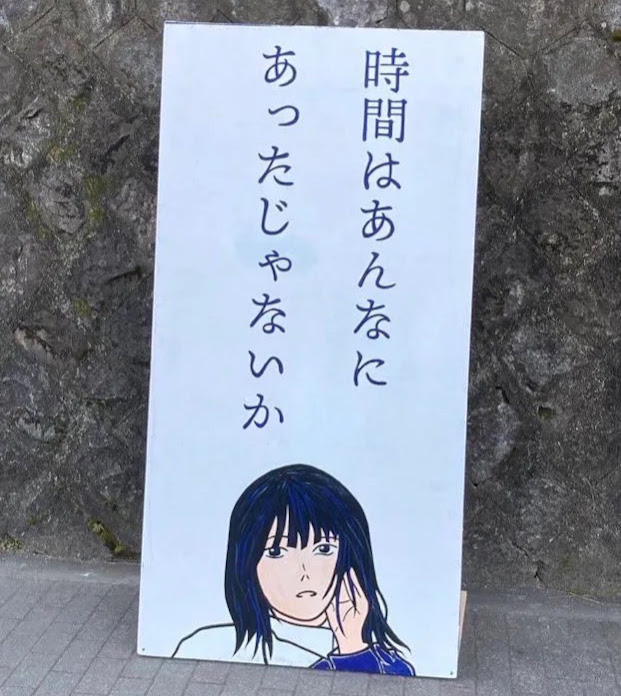 時間はあんなに
あったじゃないか